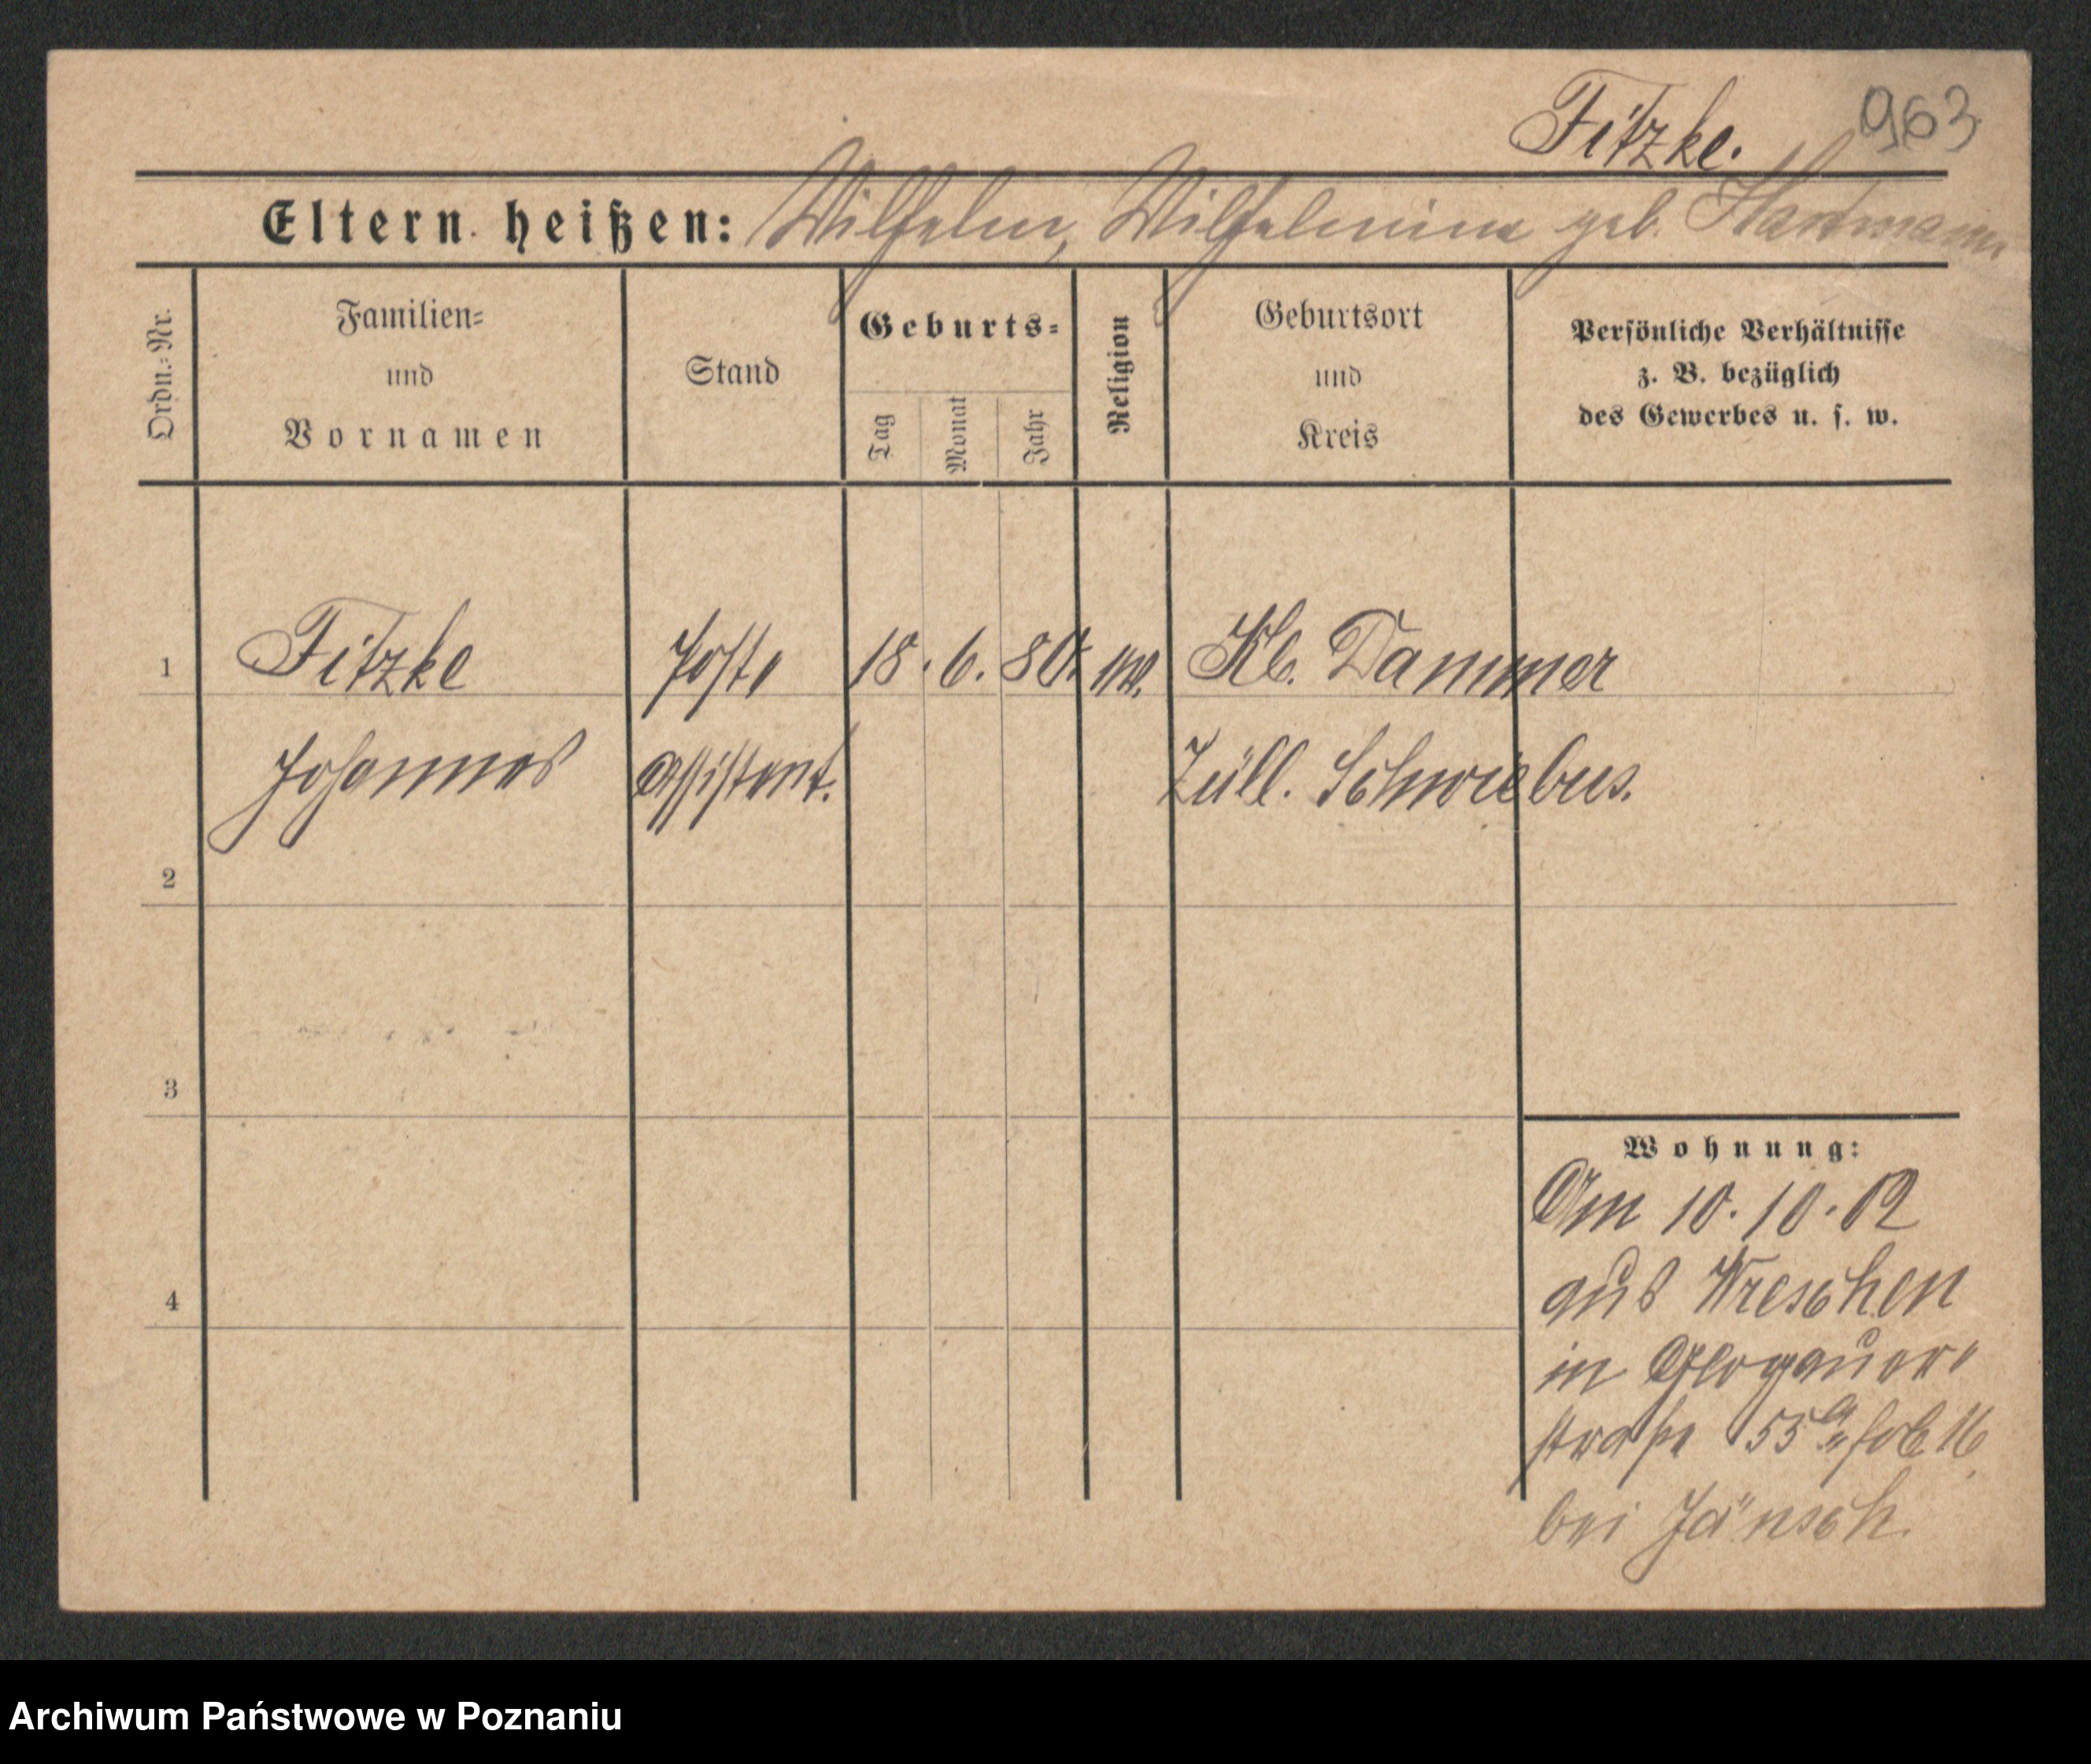 Fitzke. 963
Eltern heißen: Wilhelm, Wilhelmine geb. Hartmann
Ordn.-Nr.
Familien-
und
Vornamen
Stand
Geburts-
Tag
Monat
Jahr
Religion
Geburtsort
und
Kreis
Persönliche Verhältnisse
z. B. bezüglich
des Gewerbes u. s. w.
1 Fitzke Post- 18. 6. 80 Kl. Dammer
Johannes Assistent. Züll. Schwiebus.
2
3
4
Wohnung:
Am 10.10.02
aus Wreschen
in Glogauer-
straße 55
bei Jänsch.
Archiwum Państwowe w Poznaniu